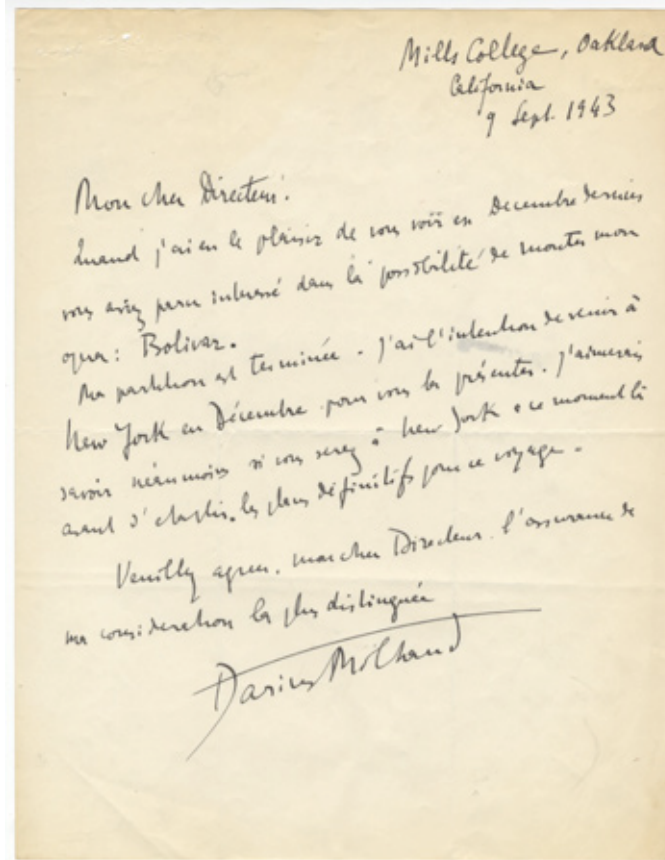 Mills College, Oakland
California
9 Sept. 1943
Mon cher Directeur.
Quand j'ai eu le plaisir de vous voir en Decembre dernier
vous aviez paru interessé dans la possibilité de monter mon
opera : Bolivar.
Ma partition est terminée. J'ai l'intention de venir à
New York en Décembre pour vous la présenter. J'aimerais
savoir néanmoins si vous serez à New York à ce moment là
avant d'établir les plans définitifs pour ce voyage.
Veuillez agréer, mon cher Directeur l'assurance de
ma consideration la plus distinguée
Darius Milhaud